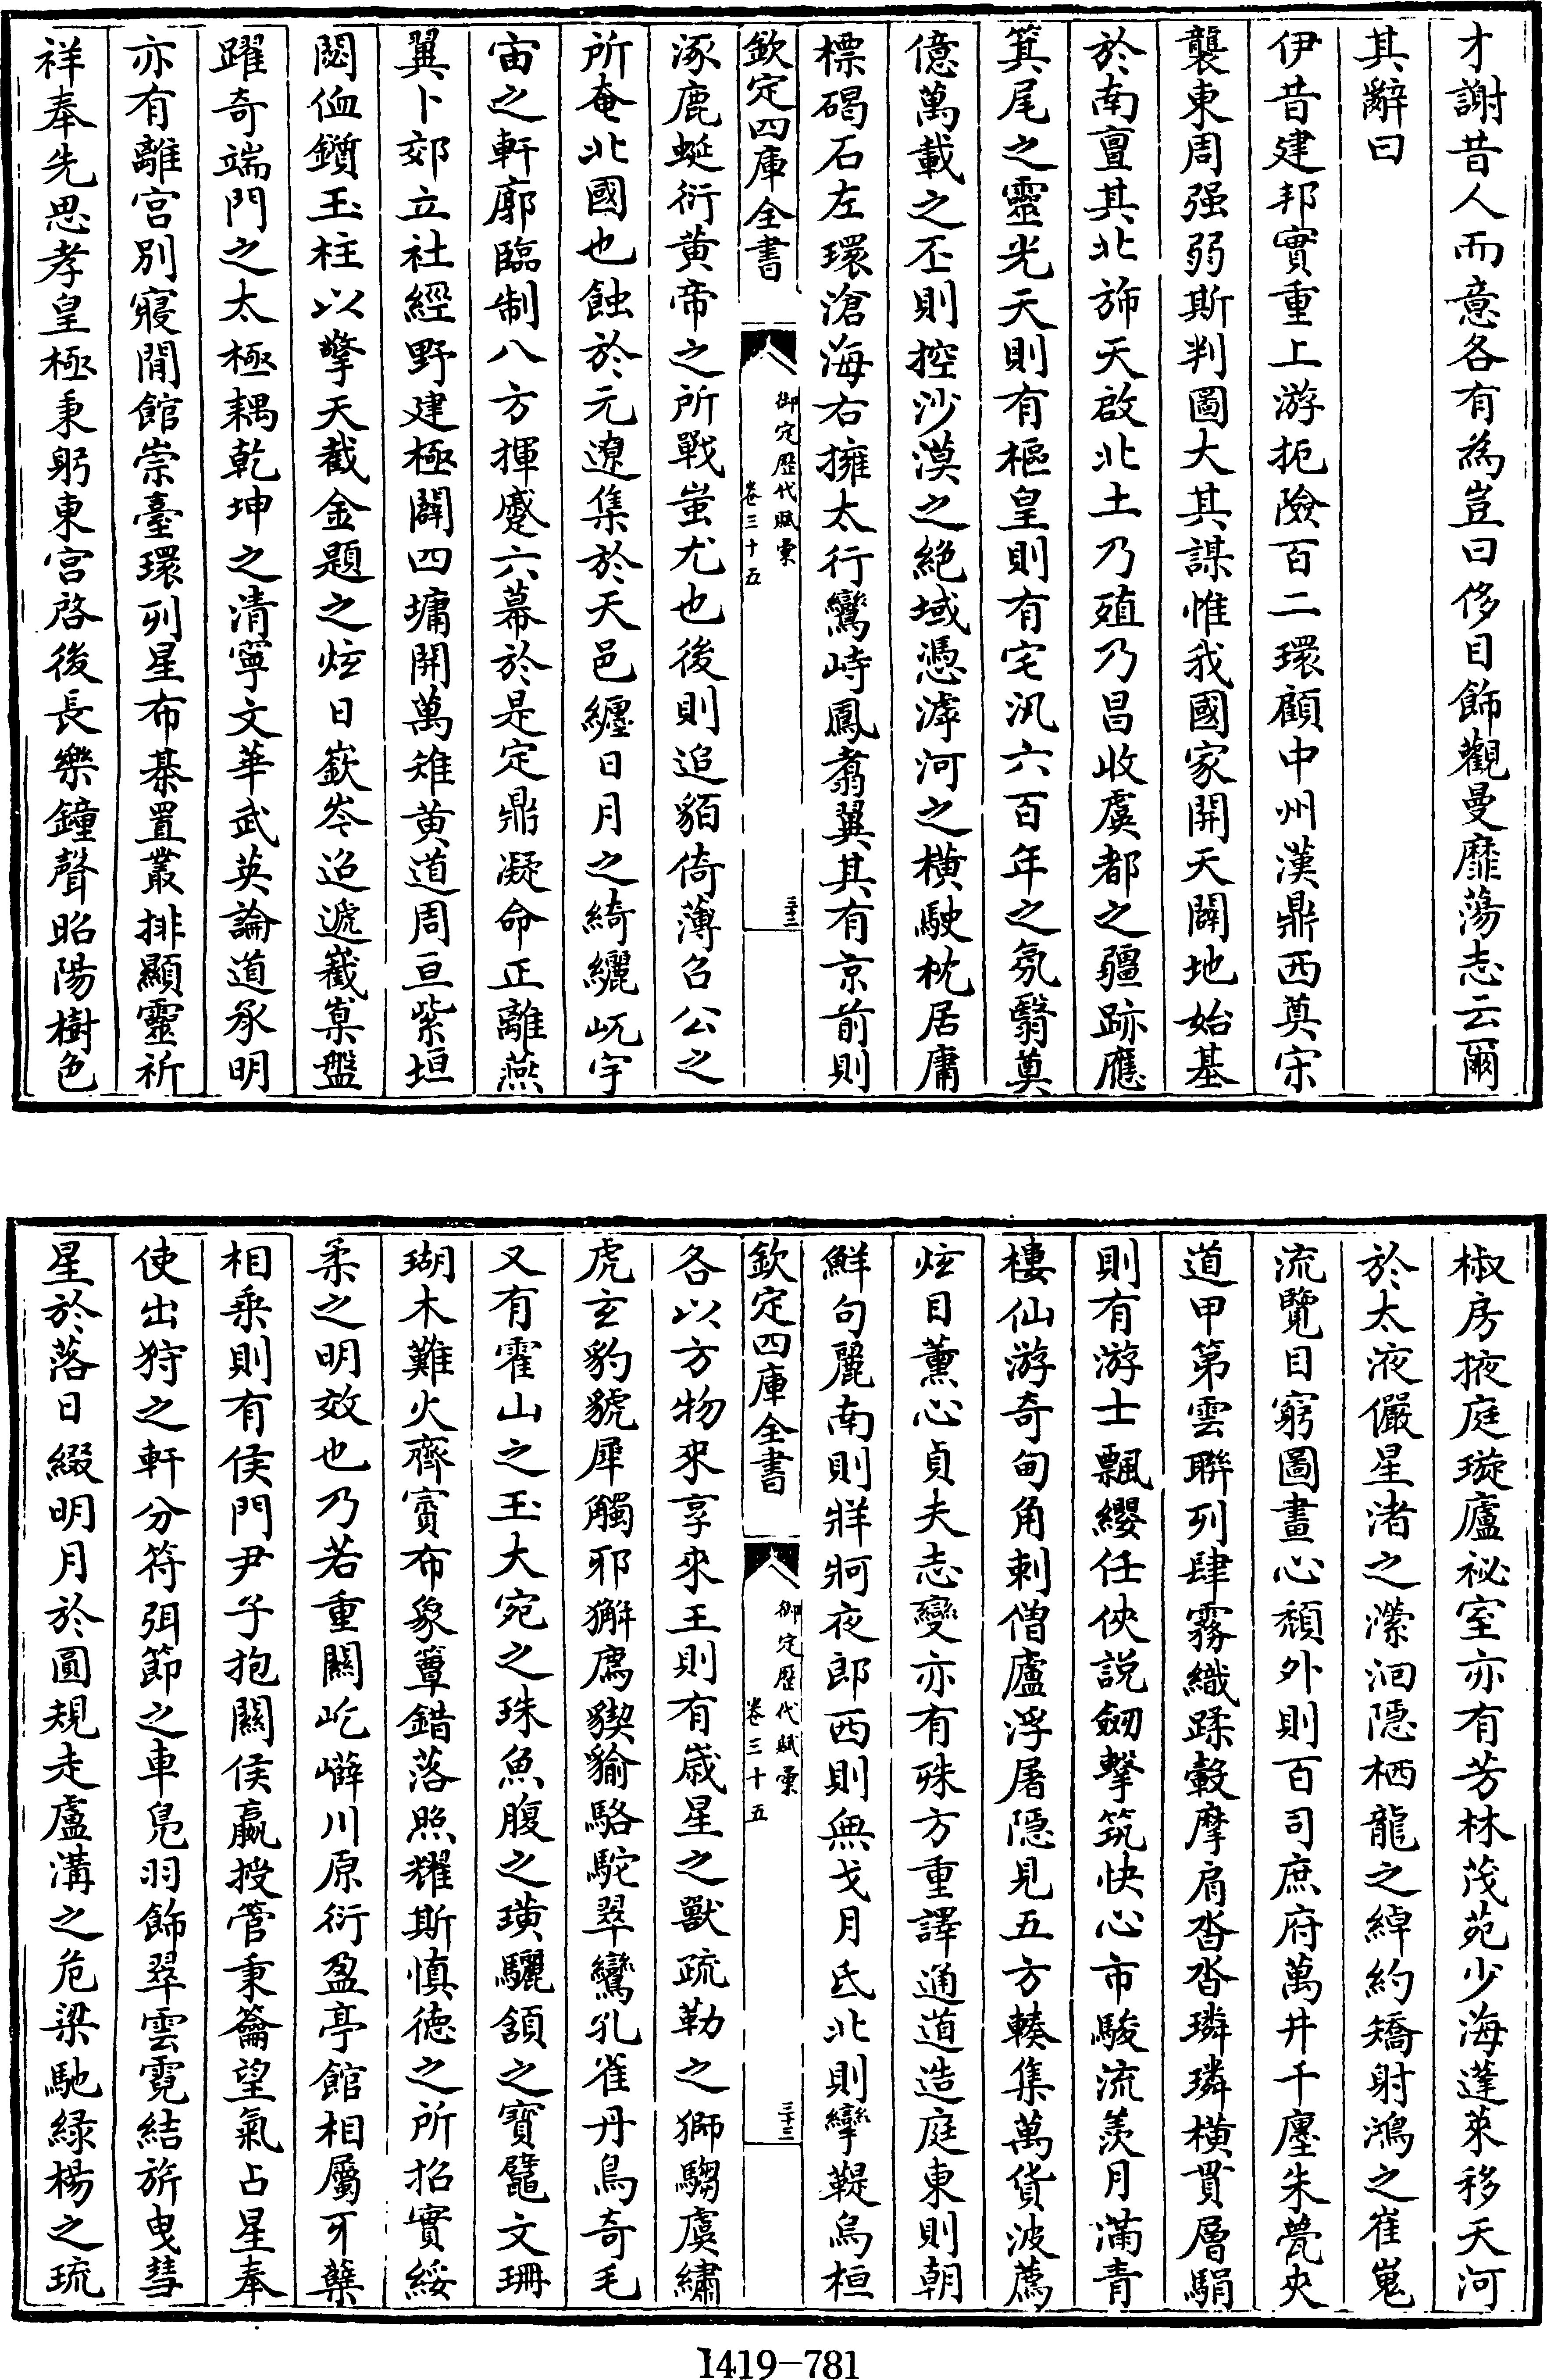 才謝昔人而意各有為豈曰侈目飾觀曼靡蕩志云爾
其辭曰
伊昔建邦實重上游扼險百二環顧中州漢鼎西奠宋
襲東周强弱斯判圖大其謀惟我國家開天闢地始基
於南亶其北斾天啟北土乃殖乃昌收虞都之疆跡應
箕尾之靈光天則有樞皇則有宅汎六百年之氛翳奠
億萬載之丕則控沙漠之絶域憑滹河之横駛枕居庸
標碣石左環滄海右擁太行鸞峙鳳翥翼其有京前則
欽定四庫全書
御定歷代賦彙
卷三十五
三十三
涿鹿蜒衍黄帝之所戰蚩尤也後則追貊倚薄召公之
所奄北國也蝕於元遼集於天邑纏日月之綺纚屼宇
宙之軒廓臨制八方揮蹙六幕於是定鼎凝命正離燕
翼卜郊立社經野建極闢四墉開萬雉黄道周亘紫垣
閟侐鑕玉柱以擎天截金題之炫日嶔岑迢遞嶻嵲盤
躍奇端門之太極耦乾坤之清寧文華武英論道承明
亦有離宫別寢閒館崇臺環列星布棊置叢排顯靈祈
祥奉先思孝皇極秉躬東宫啓後長樂鐘聲昭陽樹色
椒房掖庭璇廬祕室亦有芳林茂苑少海蓬萊移天河
於太液儼星渚之瀠洄隱栖龍之綽約矯射鴻之崔嵬
流覽目窮圖畫心頽外則百司庶府萬井千廛朱甍夾
道甲第雲聯列肆霧織蹂轂摩肩沓沓璘璘横貫層駽
則有游士飄纓任俠説劒擊筑快心市駿流羡月滿青
樓仙游奇甸角刺僧廬浮屠隱見五方輳集萬貨波薦
炫目薰心貞夫志變亦有殊方重譯通道造庭東則朝
鮮句麗南則牂牁夜郎西則無戈月氏北則孿鞮烏桓
欽定四庫全書
御定歷代賦彙
卷三十五
三十三
各以方物來享來王則有歲星之獸疏勒之獅騶虞繡
虎玄豹貔犀觸邪獬廌猰貐駱駝翠鸞孔雀丹鳥奇毛
又有霍山之玉大宛之珠魚腹之璜驪頷之寶鼊文珊
瑚木難火齊賨布象簟錯落照耀斯慎德之所招實綏
柔之明效也乃若重關屹嶭川原衍盈亭館相屬牙蘖
相乘則有侯門尹子抱關侯嬴授管秉籥望氣占星奉
使出狩之軒分符弭節之車鳬羽飾翠雲霓結旂曳彗
星於落日綴明月於圓規走盧溝之危梁馳緑楊之琉
1419-781